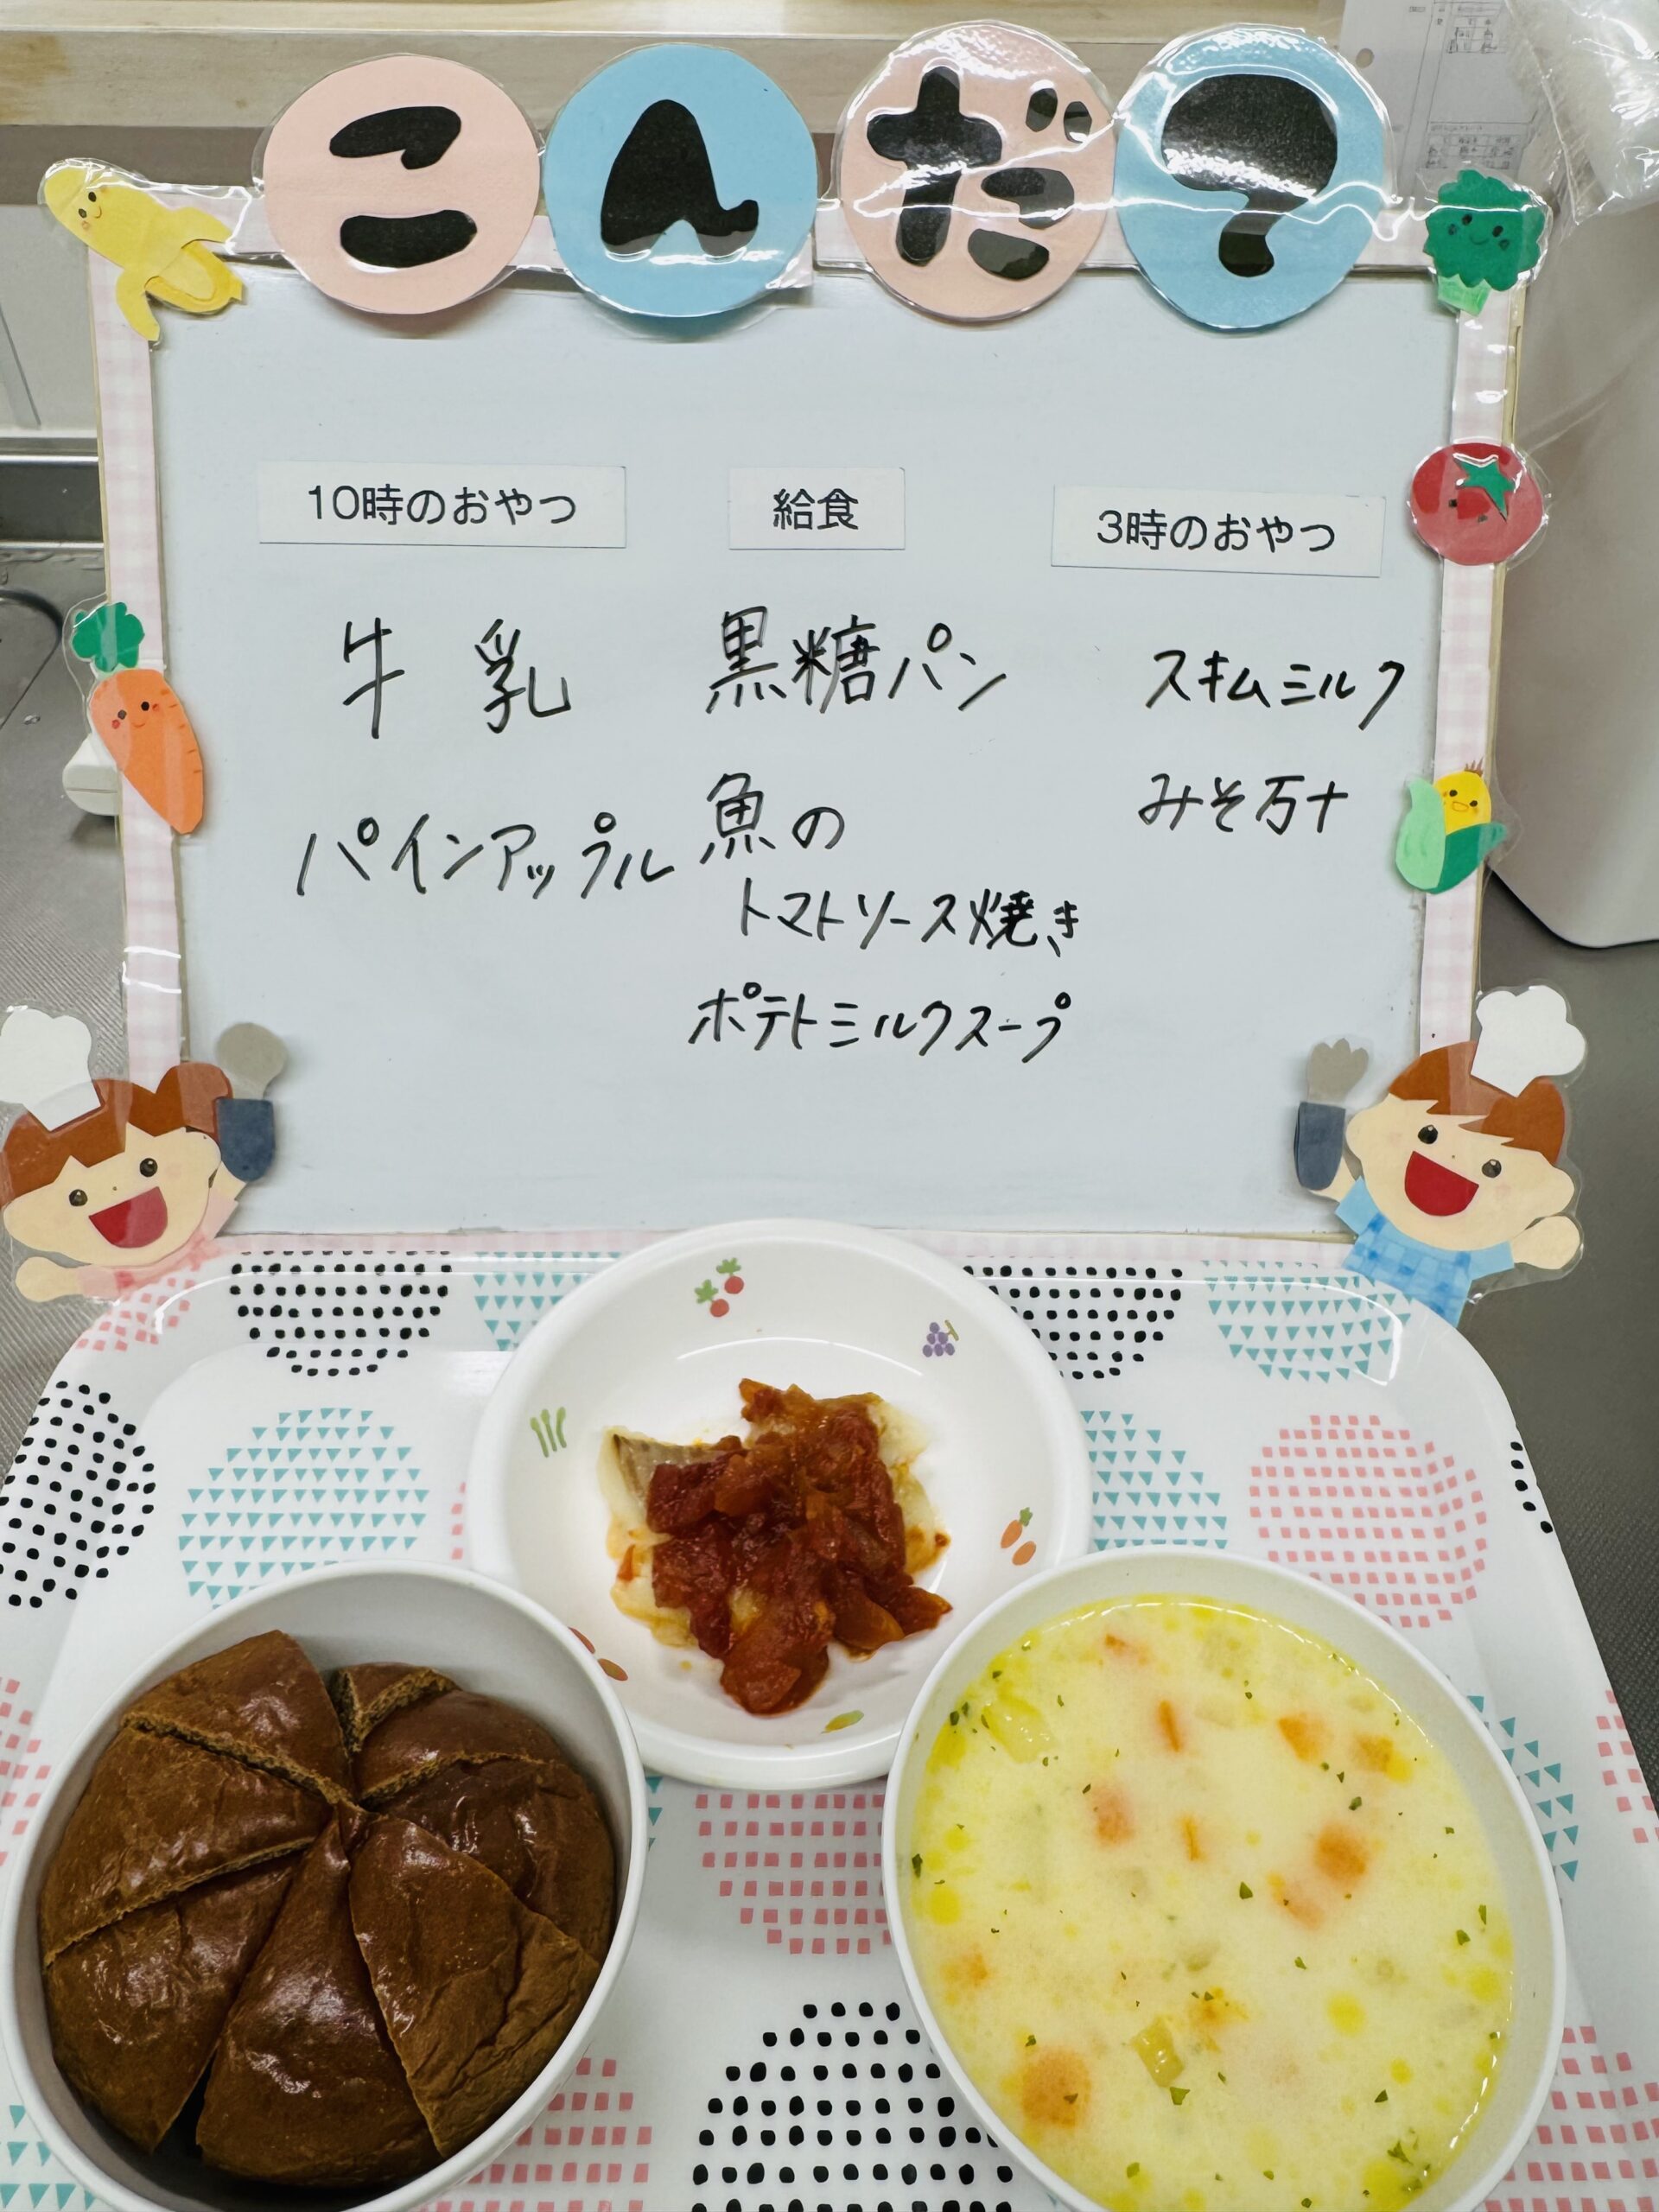 こんだて
10時のおやつ
牛乳
パインアップル
給食
黒糖パン
魚の
トマトソース焼き
ポテトミルクスープ
3時のおやつ
スキムミルク
みそ万十